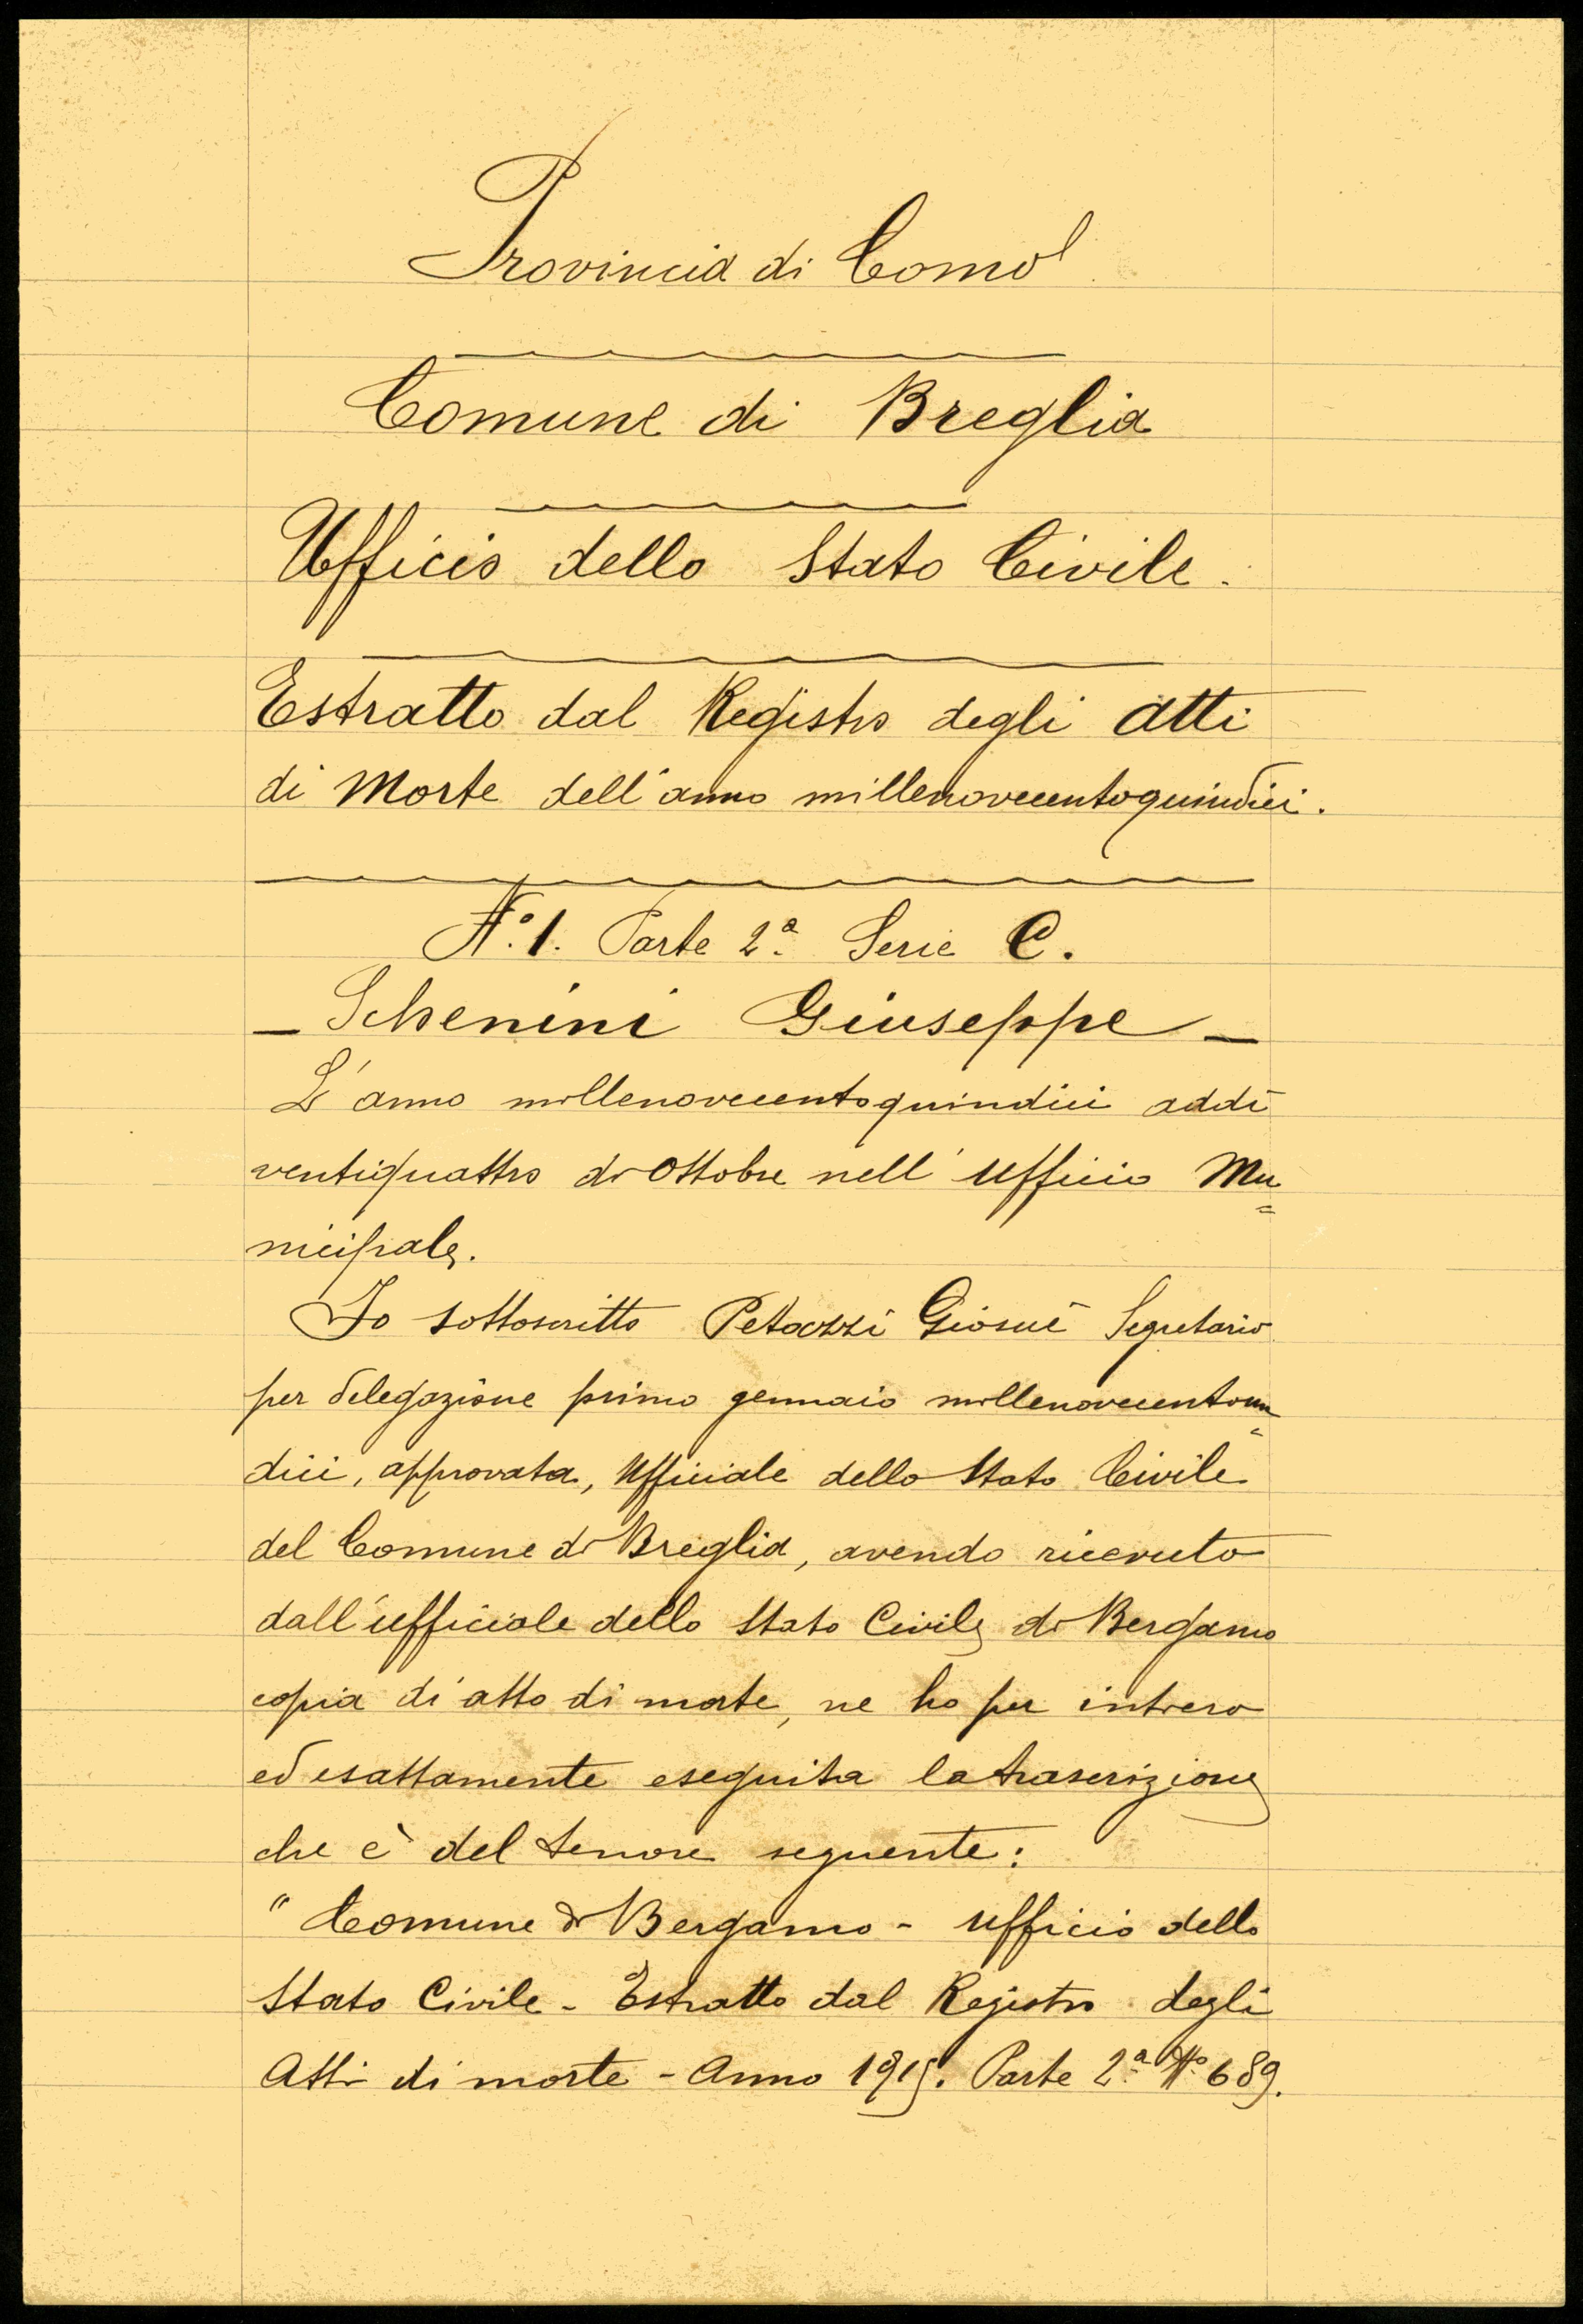 Provincia di Como
Comune di Breglia
Ufficio dello Stato Civile.
Estratto dal Registro degli Atti
di Morte dell'anno millenovecentoquindici.
N.º 1. Parte 2.ª Serie C.
- Schenini Giuseppe -
L'anno millenovecentoquindici addì
ventiquattro di Ottobre nell'Ufficio Mu=
nicipale.
Io sottoscritto Petazzi Giosuè Segretario
per delegazione primo gennaio millenovecentoun=
dici, approvata, Ufficiale dello Stato Civile
del Comune di Breglia, avendo ricevuto
dall'ufficiale dello Stato Civile di Bergamo
copia di atto di morte, ne ho per intiero
ed esattamente eseguita la trascrizione
che è del tenore seguente:
" Comune di Bergamo - Ufficio dello
Stato Civile - Estratto dal Registro degli
Atti di morte - Anno 1915. Parte 2.ª Nº 689.